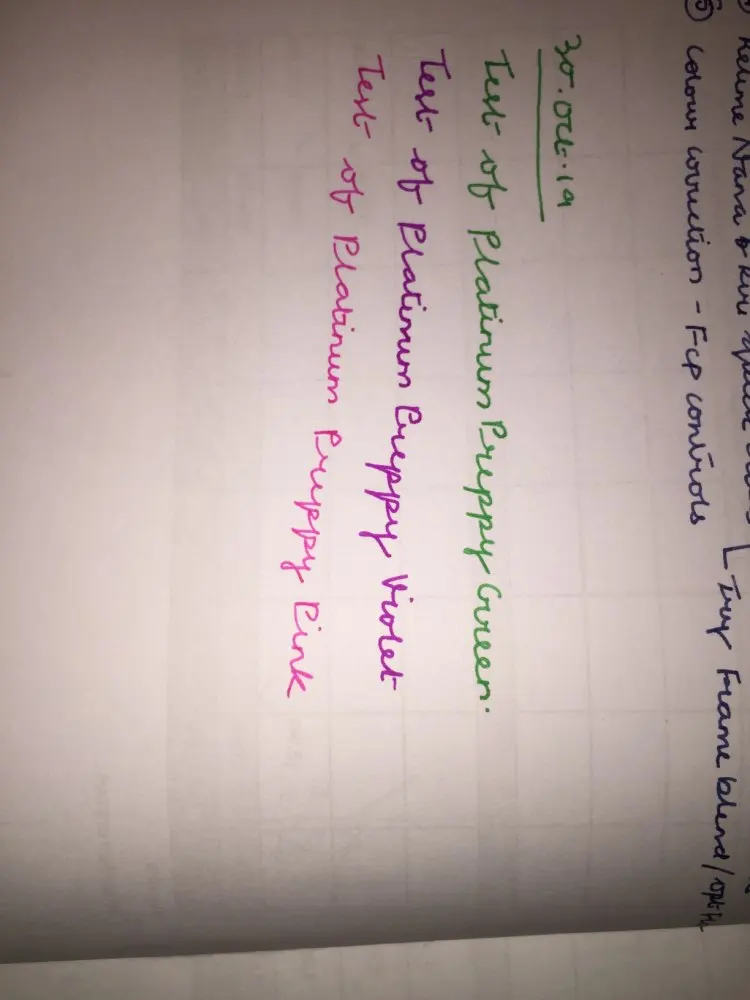 Nana &
Try Frame blend/
⑤ colour correction - FCP controls
30.Oct.19
Test of Platinum Preppy Green.
Test of Platinum Preppy Violet
Test of Platinum Preppy Pink